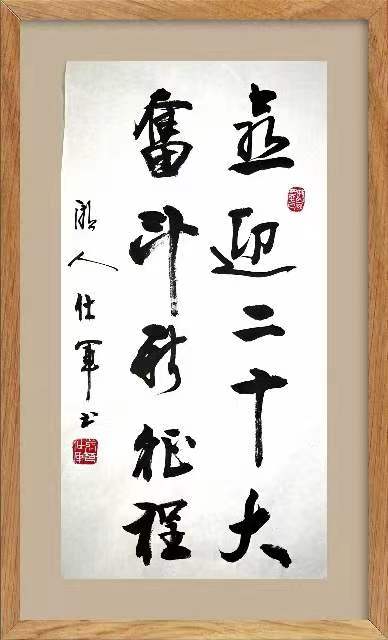 喜迎二十大
奋斗新征程
湘人仕军书